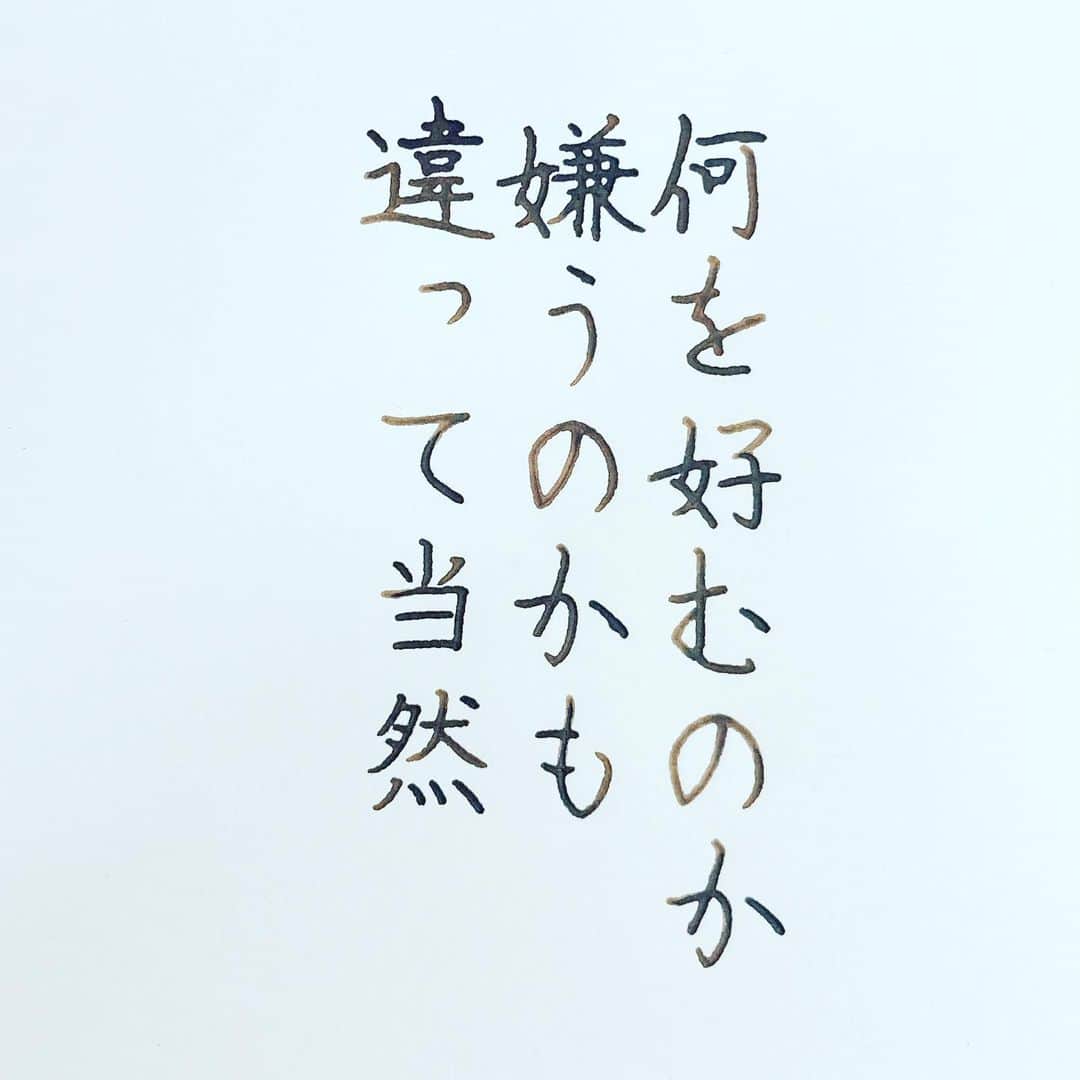 何を好むのか
嫌うのかも
違って当然